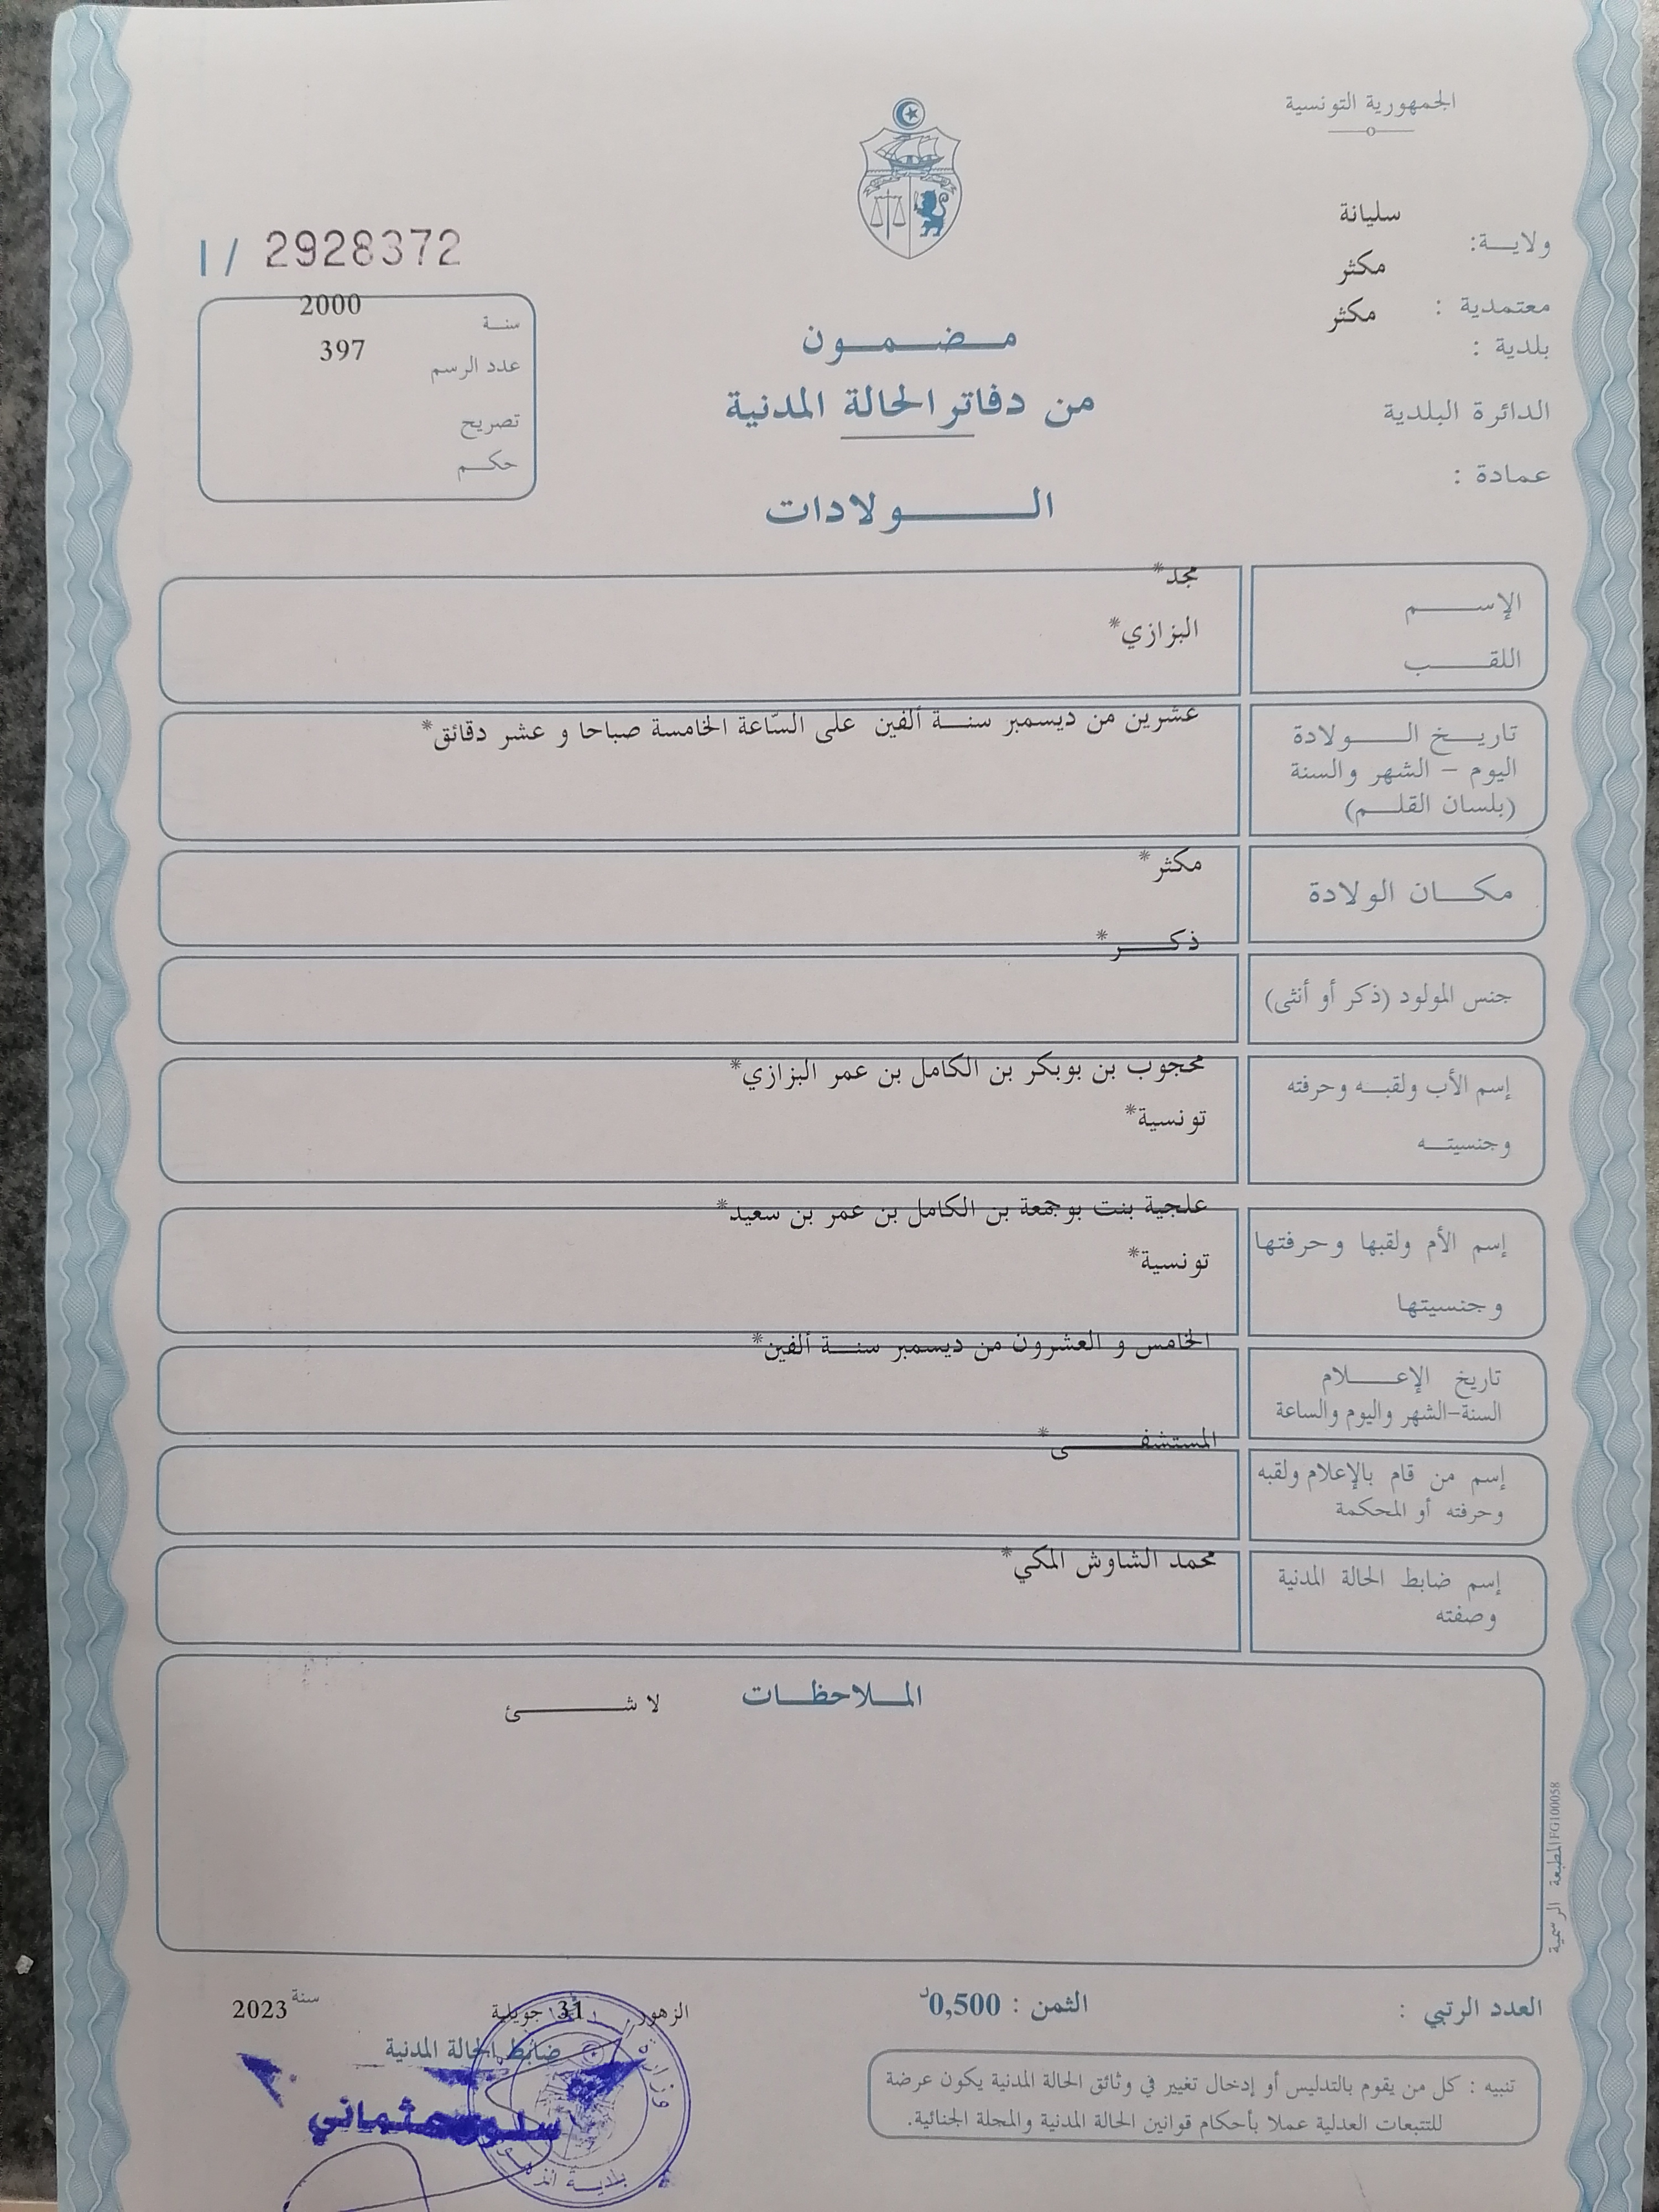 الجمهورية التونسية
ولاية: سليانة
معتمدية : مكثر
بلدية : مكثر
الدائرة البلدية
عمادة :
مضمون
من دفاتر الحالة المدنية
الولادات
I / 2928372
سنة 2000
عدد الرسم 397
تصريح
حكم
الإسم مجد*
اللقب البزازي*
تاريخ الولادة
اليوم - الشهر والسنة
(بلسان القلم)
عشرين من ديسمبر سنة ألفين على السّاعة الخامسة صباحا و عشر دقائق*
مكان الولادة مكثر*
جنس المولود (ذكر أو أنثى) ذكر*
إسم الأب ولقبه وحرفته محجوب بن بوبكر بن الكامل بن عمر البزازي*
وجنسيته تونسية*
إسم الأم ولقبها وحرفتها علجية بنت بوجمعة بن الكامل بن عمر بن سعيد*
وجنسيتها تونسية*
تاريخ الإعلام
السنة-الشهر واليوم والساعة
الخامس و العشرون من ديسمبر سنة ألفين*
إسم من قام بالإعلام ولقبه
وحرفته أو المحكمة
المستشفى*
إسم ضابط الحالة المدنية
وصفته
محمد الشاوش المكي*
الملاحظات لا شئ
المطبعة الرسمية FG100058
العدد الرتبي :
الثمن : 0,500د
الزهور 31 جويلية سنة 2023
ضابط الحالة المدنية
تنبيه : كل من يقوم بالتدليس أو إدخال تغيير في وثائق الحالة المدنية يكون عرضة
للتتبعات العدلية عملا بأحكام قوانين الحالة المدنية والمجلة الجنائية.
وزارة
بلدية